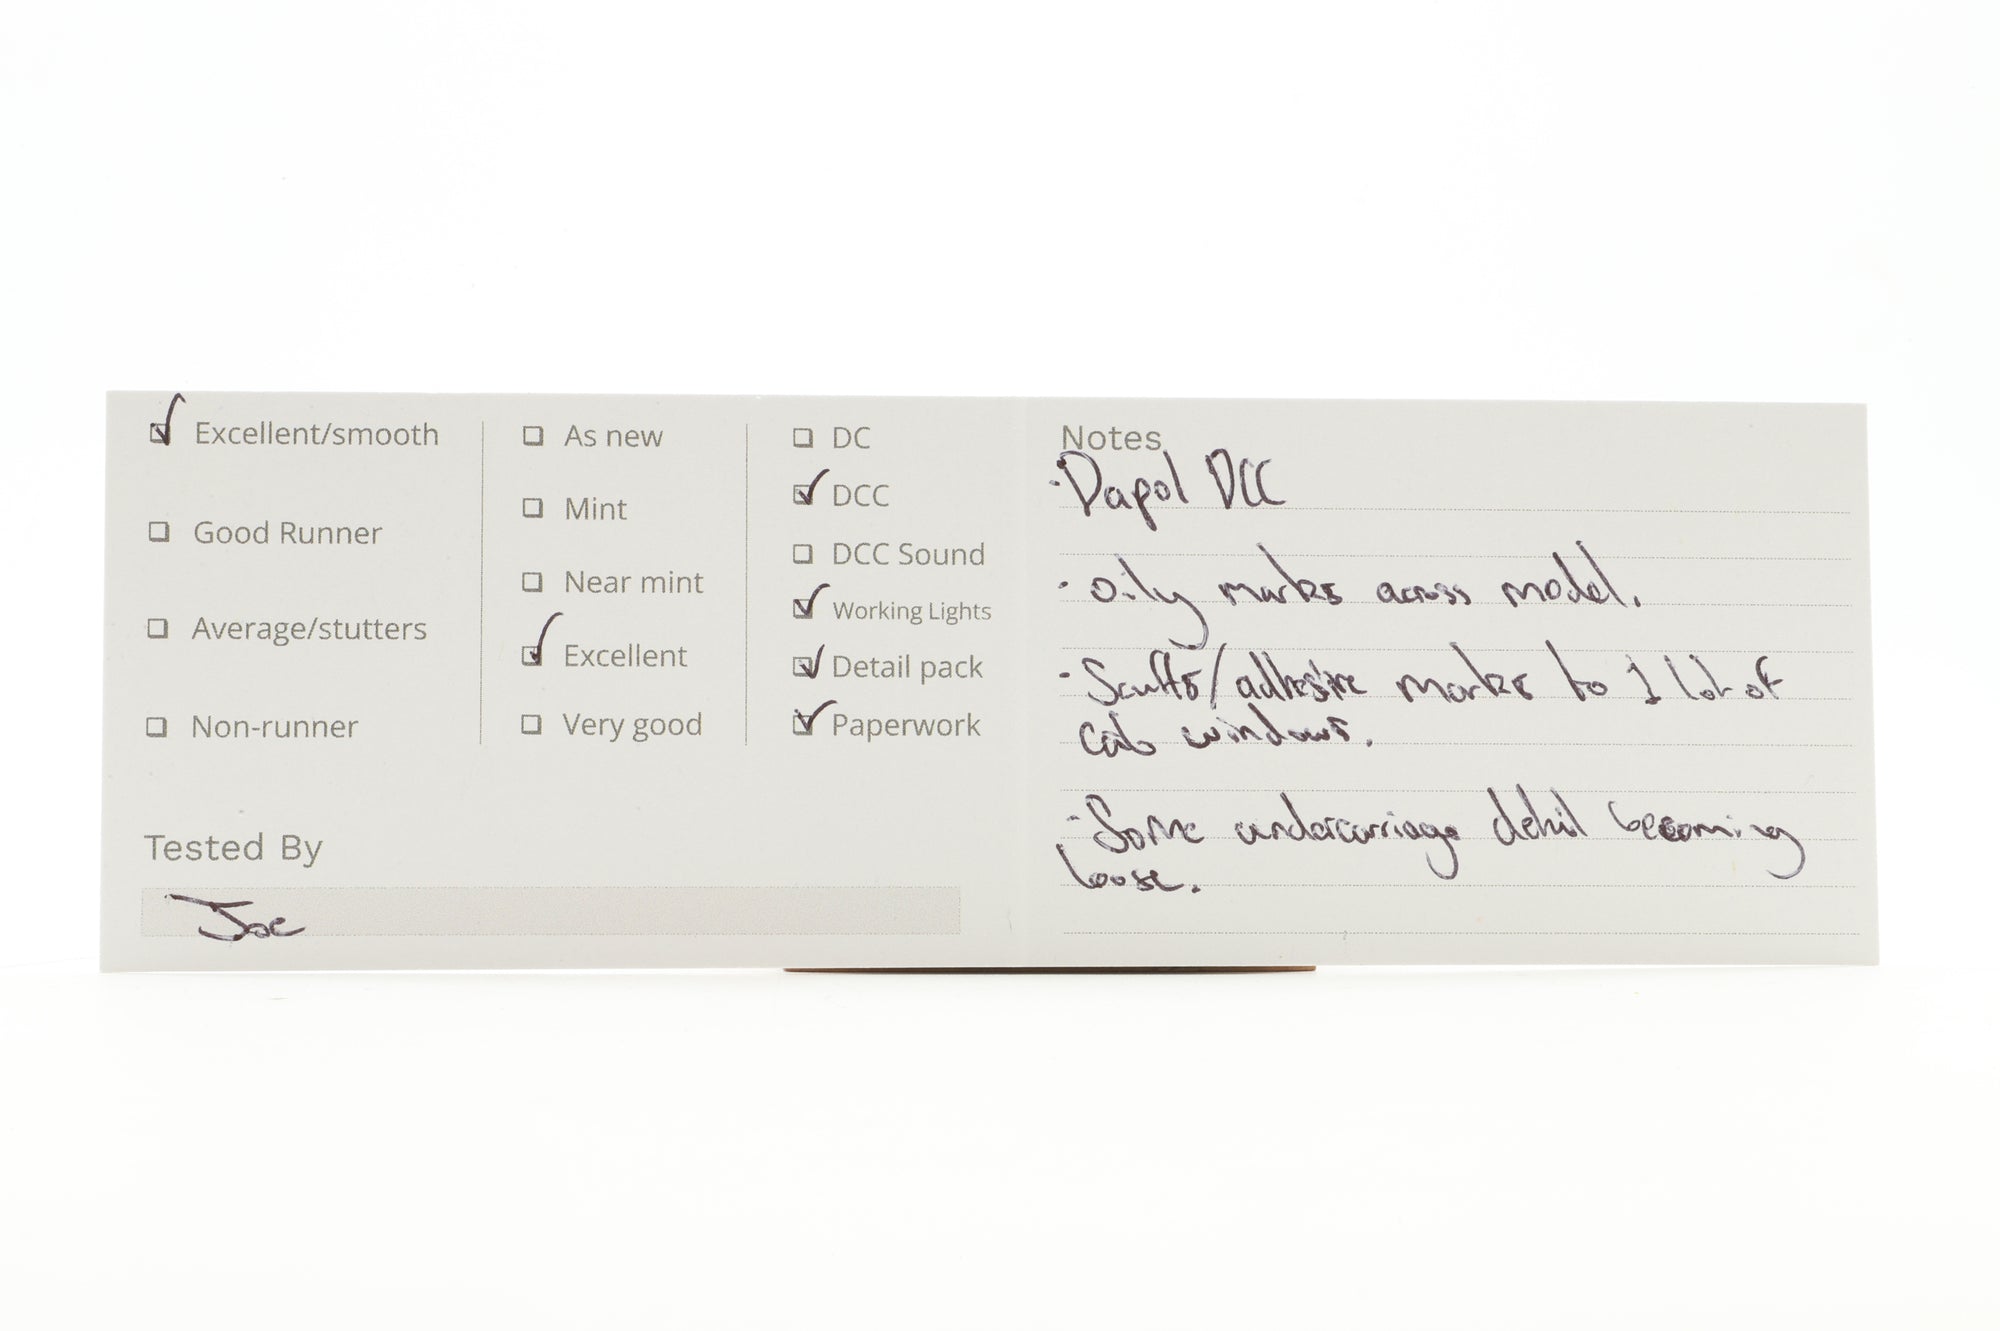 Excellent/smooth
Good Runner
Average/stutters
Non-runner
As new
Mint
Near mint
Excellent
Very good
DC
DCC
DCC Sound
Working Lights
Detail pack
Paperwork
Tested By
Joe
Notes
· Dapol DCC
· oily marks across model.
· Scuffs/adhesive marks to 1 lot of
cab windows.
· Some undercarriage detail becoming
loose.